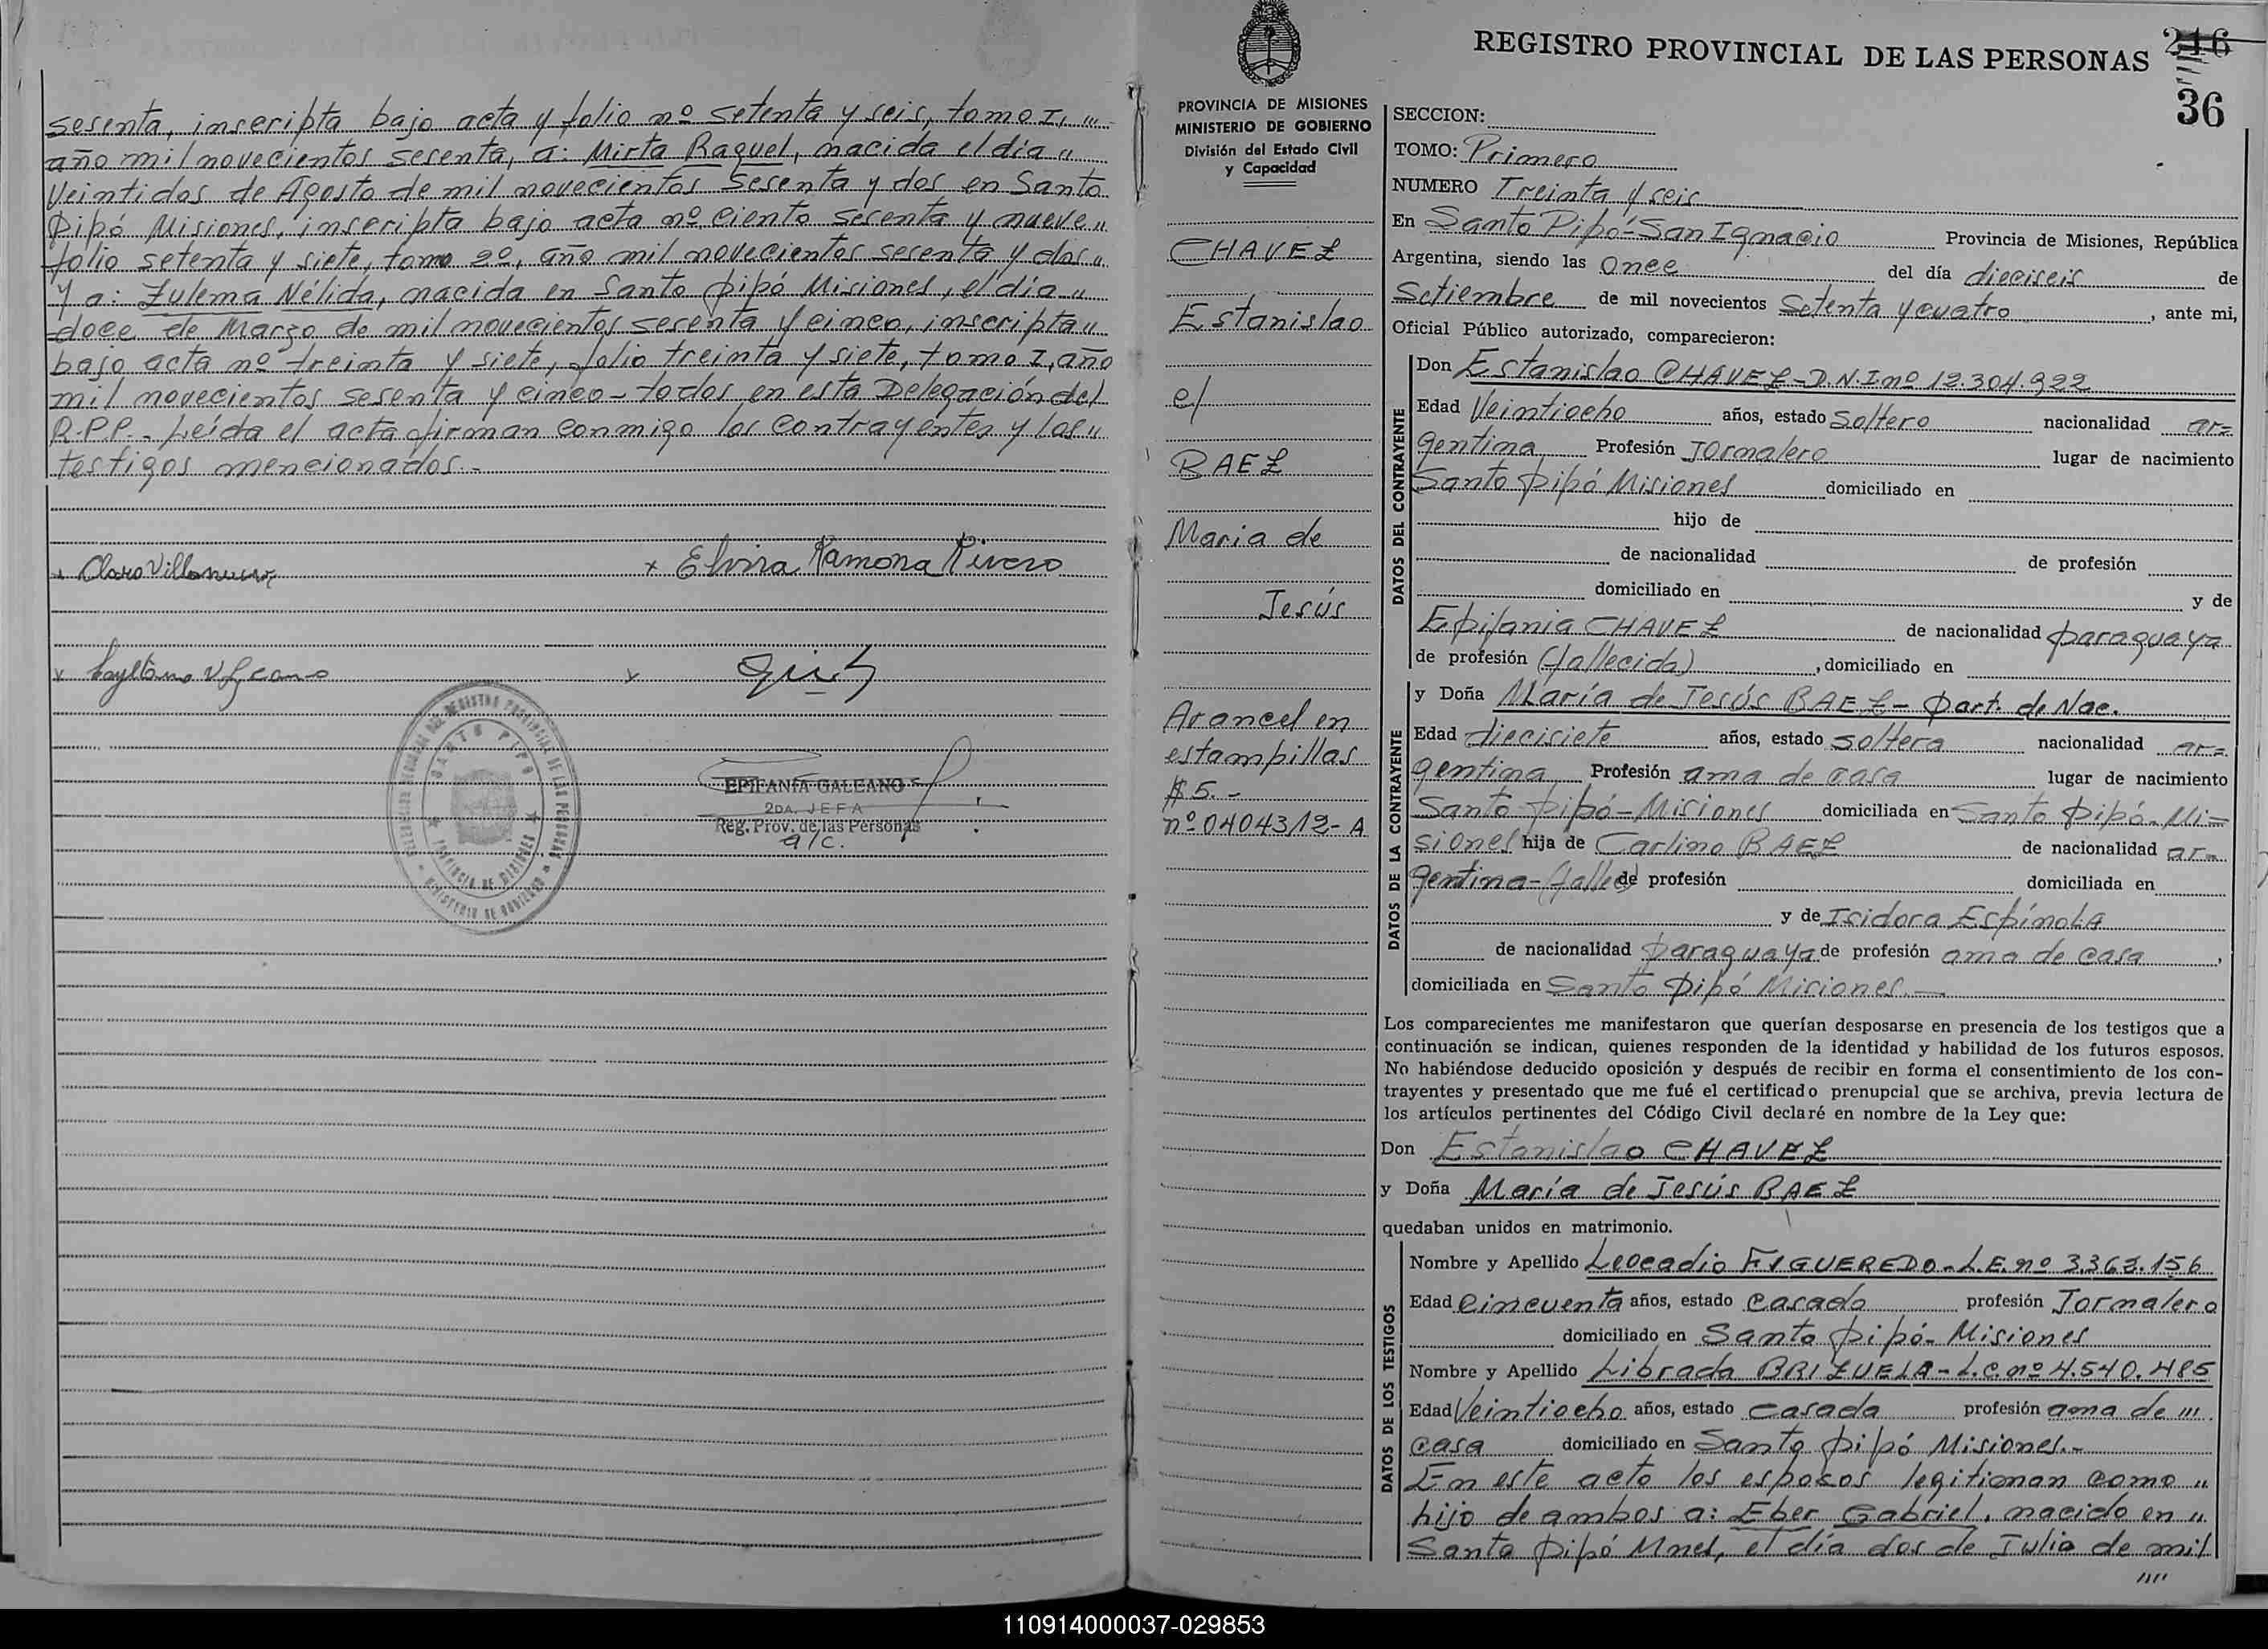 sesenta, inscripta bajo acta y folio nº setenta y seis, tomo I, "
año mil novecientos sesenta, a: Mirta Raquel, nacida el día "
Veintidos de Agosto de mil novecientos sesenta y dos en Santo
Pipó Misiones, inscripta bajo acta nº ciento sesenta y nueve "
folio setenta y siete, tomo 2º, año mil novecientos sesenta y dos "
y a: Zulema Nélida, nacida en Santo Pipó Misiones, el día "
doce de Marzo de mil novecientos sesenta y cinco, inscripta "
bajo acta nº treinta y siete, folio treinta y siete, tomo I, año
mil novecientos sesenta y cinco - todos en esta Delegación del
R.P.P.- Leída el acta firman conmigo los contrayentes y los "
testigos mencionados.-
x Claro Villanueva
x Elvira Ramona Rivero
x
x
DELEGACION DEL REGISTRO PROVINCIAL DE LAS PERSONAS
SANTO PIPO
PROVINCIA DE MISIONES
MINISTERIO DE GOBIERNO
EPIFANIA GALEANO
2DA. JEFA
Reg. Prov. de las Personas
a/c.
REGISTRO PROVINCIAL DE LAS PERSONAS
246
36
PROVINCIA DE MISIONES
MINISTERIO DE GOBIERNO
División del Estado Civil
y Capacidad
CHAVEZ
Estanislao
c/
BAEZ
Maria de
Jesús
Arancel en
estampillas
$ 5.-
nº 0404312-A
SECCION:
TOMO: Primero
NUMERO Treinta y seis
En Santo Pipó-San Ignacio Provincia de Misiones, República
Argentina, siendo las Once del día dieciseis de
Setiembre de mil novecientos Setenta y cuatro, ante mi,
Oficial Público autorizado, comparecieron:
DATOS DEL CONTRAYENTE
Don Estanislao CHAVEZ - D.N.I nº 12.304.922
Edad Veintiocho años, estado soltero nacionalidad ar=
gentina Profesión Jornalero lugar de nacimiento
Santo Pipó Misiones domiciliado en
hijo de
de nacionalidad de profesión
domiciliado en y de
Epifania CHAVEZ de nacionalidad paraguaya
de profesión (fallecida), domiciliado en
DATOS DE LA CONTRAYENTE
y Doña María de Jesús BAEZ - Part. de Nac.
Edad diecisiete años, estado soltera nacionalidad ar=
gentina Profesión ama de casa lugar de nacimiento
Santo Pipó-Misiones domiciliada en Santo Pipó-Mi=
siones hija de Carlino BAEZ de nacionalidad ar=
gentina-(fallec) de profesión domiciliada en
y de Isidora EspínoLA
de nacionalidad paraguaya de profesión ama de casa,
domiciliada en Santo Pipó Misiones.-
Los comparecientes me manifestaron que querían desposarse en presencia de los testigos que a
continuación se indican, quienes responden de la identidad y habilidad de los futuros esposos.
No habiéndose deducido oposición y después de recibir en forma el consentimiento de los con-
trayentes y presentado que me fué el certificado prenupcial que se archiva, previa lectura de
los artículos pertinentes del Código Civil declaré en nombre de la Ley que:
Don Estanislao CHAVEZ
y Doña María de Jesús BAEZ
quedaban unidos en matrimonio.
DATOS DE LOS TESTIGOS
Nombre y Apellido Leocadio FIGUEREDO - L.E. nº 3.363.156
Edad Cincuenta años, estado casado profesión Jornalero
domiciliado en Santo Pipó-Misiones
Nombre y Apellido Librada BRIZUELA - L.C. nº 4.540.485
Edad Veintiocho años, estado casada profesión ama de "'
casa domiciliado en Santo Pipó Misiones.-
En este acto los esposos legitiman como "
hijo de ambos a: Eber Gabriel, nacido en "
Santo Pipó Mnes, el día dos de Julio de mil
""
110914000037-029853